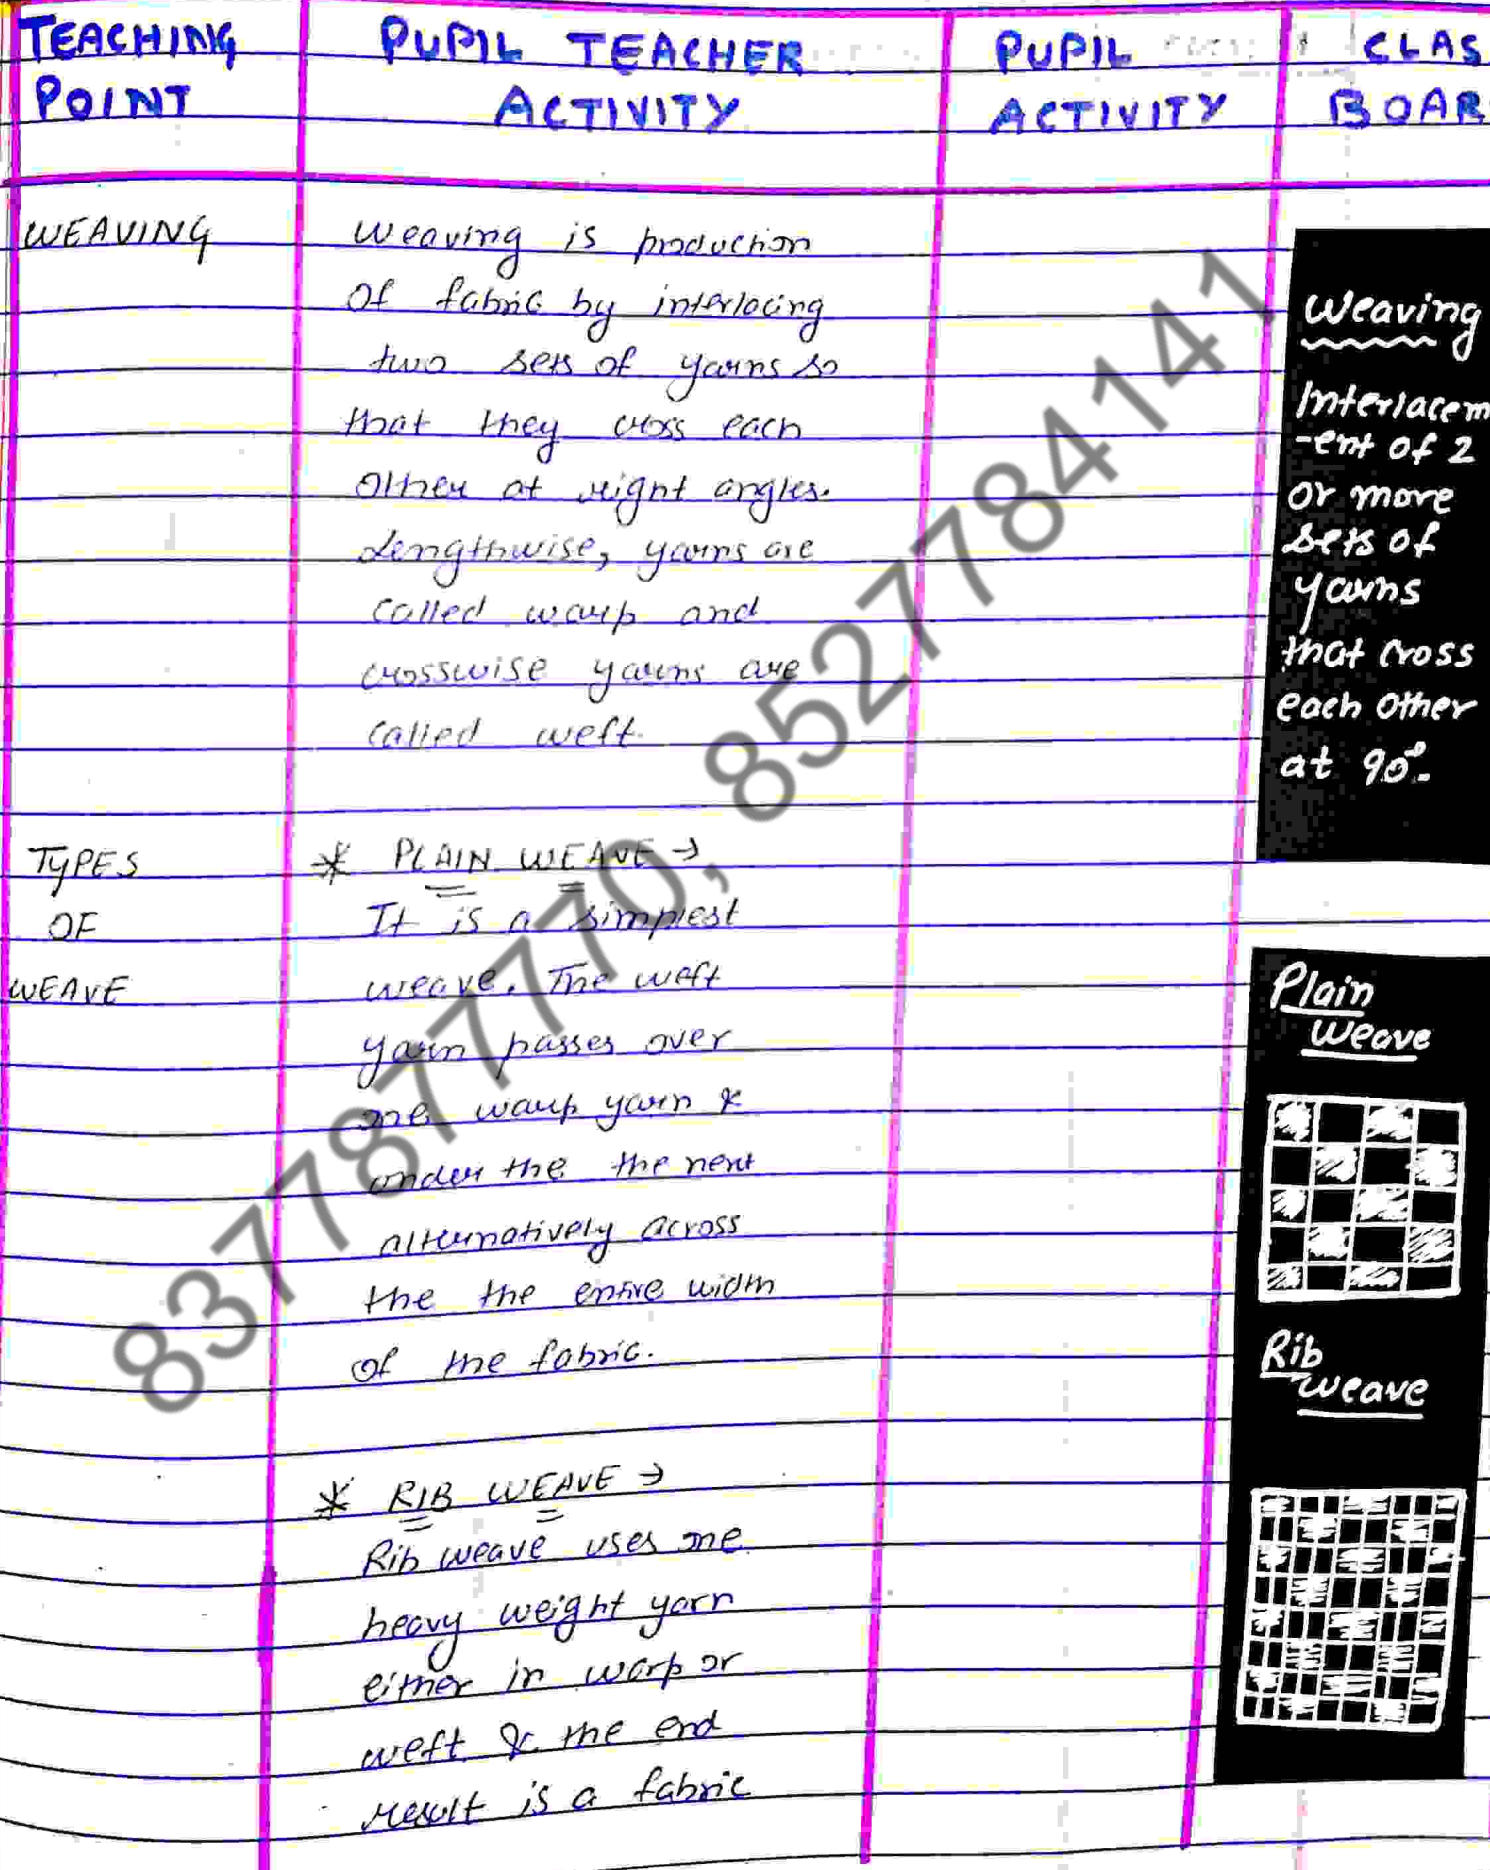 TEACHING POINT
PUPIL TEACHER ACTIVITY
PUPIL ACTIVITY
CLAS
BOAR
WEAVING
Weaving is production
of fabric by interlacing
two sets of yarns so
that they cross each
other at right angles.
Lengthwise, yarns are
called warp and
crosswise yarns are
called weft.
Weaving
Interlacem
-ent of 2
or more
sets of
yarns
that cross
each other
at 90°.
TYPES
OF
WEAVE
* PLAIN WEAVE →
It is a simplest
weave. The weft
yarn passes over
one warp yarn &
under the the next
alternatively across
the the entire width
of the fabric.
Plain
Weave
Rib
Weave
* RIB WEAVE →
Rib weave uses one
heavy weight yarn
either in warp or
weft & the end
result is a fabric
8377877770, 8527784141